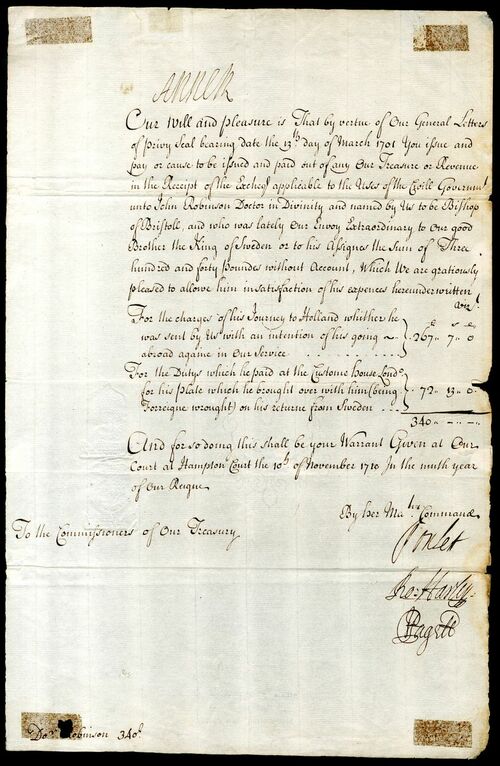 Anne R
Our Will and pleasure is That by vertue of Our General Letters
of Privy Seal bearing date the 13th day of March 1701 You issue and
pay or cause to be issued and paid out of any Our Treasure or Revenue
in the Receipt of the Excheqr applicable to the Uses of the Civill Governmt
unto John Robinson Doctor in Divinity and named by Us to be Bishop
of Bristoll, and who was lately Our Envoy Extraordinary to Our good
Brother the King of Sweden or to his Assignes the Sum of Three
hundred and forty Poundes without Account, Which We are gratiously
pleased to allow him in satisfaction of his expences hereunderwritten
vizt.
For the charges of his Journey to Holland whither he
was sent by Us with an intention of his going
abroad againe in Our Service . . . . . . . . . . .
£ s d
267 " 7 " 0
For the Dutys which he paid at the Custome House Londo.
for his plate which he brought over with him (being
Forreigne wrought) on his returne from Sweden . . .
72 " 13 " 0
340 " - " -
And for so doing this shall be your Warrant Given at Our
Court at Hampton Court the 10th of November 1710 In the ninth year
of Our Reigne
By Her Mats Command
To the Commissioners of Our Treasury
Poulet
Ro: Harley
HPagett
Dor. Robinson 340£